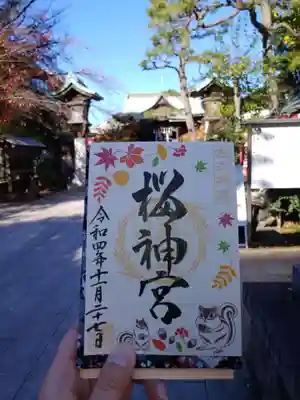 桜神宮
令和四年十一月二十七日